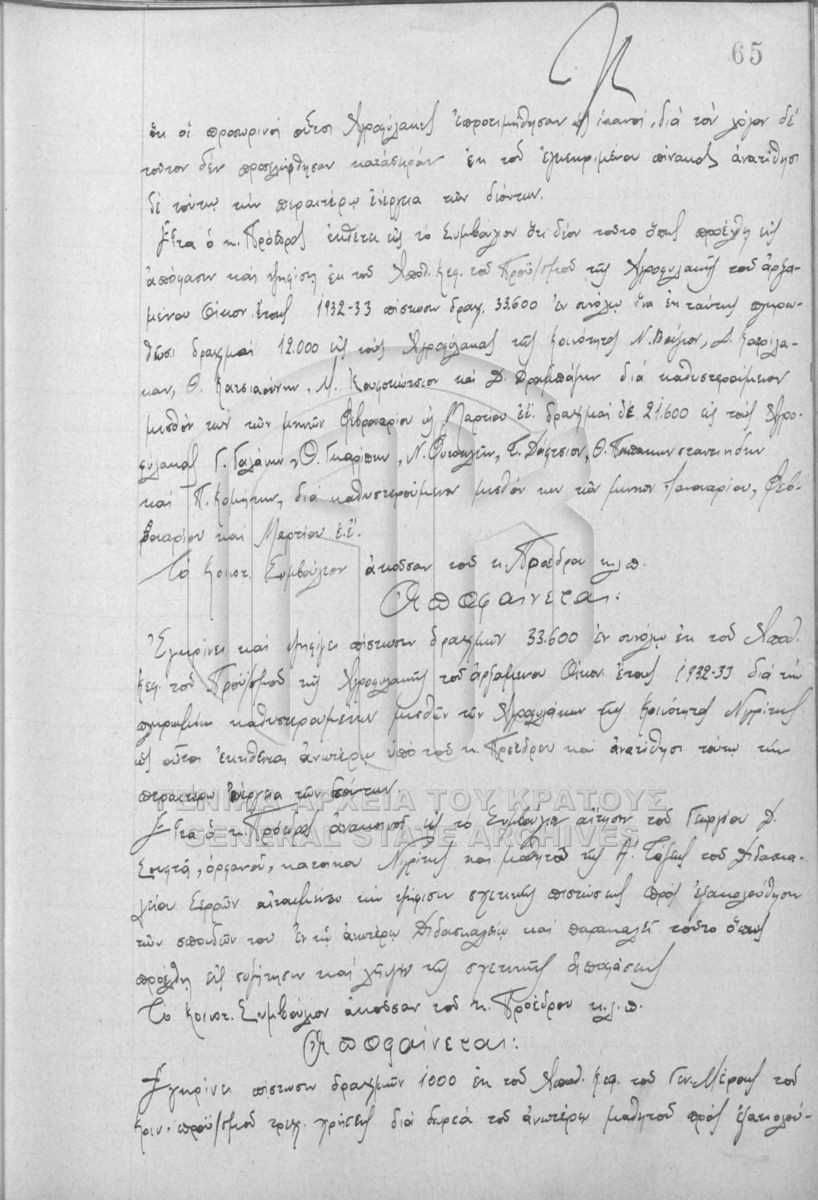 65
ὅτι οἱ προσωρινοὶ οὗτοι Ἀγροφύλακες ἐπροτιμήθησαν ὡς ἱκανοί, διὰ τὸν λόγον δὲ
τοῦτον δὲν προσελήφθησαν κατὰ σειρὰν ἐκ τοῦ ἐγκεκριμένου πίνακος ἀνατίθησι
δὲ τούτῳ τὴν περαιτέρω ἐνέργεια τῶν δεόντων.
Εἶτα ὁ κ. Πρόεδρος ἐκθέτει εἰς τὸ Συμβούλιον ὅτι δέον τοῦτο ὅπως προέλθῃ εἰς
ἀπόφασιν καὶ ψηφίσῃ ἐκ τοῦ Ἀποθ. Κεφ. τοῦ Προϋ/σμοῦ τῆς Ἀγροφυλακῆς τοῦ ἀρξα-
μένου Οἰκον. ἔτους 1932-33 πίστωσιν δραχ. 33.600 ἐν συνόλῳ ἵνα ἐκ ταύτης πληρω-
θῶσι δραχμαὶ 12.000 εἰς τοὺς Ἀγροφύλακας τῆς Κοινότητος Ν. Βούζιον, Δ. Καρίλα-
καν, Θ. Κατσιαούνην, Μ. Κουφοκώτσιον καὶ Δ. Δραμπάζην διὰ καθυστερούμενον
μισθόν των τῶν μηνῶν Φεβρουαρίου ὡς Μαρτίου ἐ.ἔ. δραχμαὶ δὲ 21.600 εἰς τοὺς Ἀγρο-
φύλακας Γ. Γαλάνην, Θ. Γκαρίπην, Ν. , Τ. Δάφτσιον, Θ. Παπακωνσταντινίδην
καὶ Π. Κομήτην, διὰ καθυστερούμενον μισθόν των τῶν μηνῶν Ἰανουαρίου, Φεβ-
ρουαρίου καὶ Μαρτίου ἐ.ἔ.
Τὸ Κοινοτ. Συμβούλιον ἀκοῦσαν τοῦ κ. Προέδρου κ.λ.π.
Ἀποφαίνεται:
Ἐγκρίνει καὶ ψηφίζει πίστωσιν δραχμῶν 33.600 ἐν συνόλῳ ἐκ τοῦ Ἀποθ.
Κεφ. τοῦ Προϋ/σμοῦ τῆς Ἀγροφυλακῆς τοῦ ἀρξαμένου Οἰκον. ἔτους 1932-33 διὰ τὴν
πληρωμὴν καθυστερουμένων μισθῶν τῶν Ἀγροφυλάκων τῆς Κοινότητος Νιγρίτης
ὡς οὗτοι ἐκτίθενται ἀνωτέρω ὑπὸ τοῦ κ. Προέδρου καὶ ἀνατίθησι τούτῳ τὴν
περαιτέρω ἐνέργεια τῶν δεόντων.
Εἶτα ὁ κ. Πρόεδρος ἀνακοινοῖ εἰς τὸ Συμβούλιον αἴτησιν τοῦ Γεωργίου Δ.
ὀρφανοῦ, κατοίκου Νιγρίτης καὶ μαθητοῦ τῆς Α΄ Τάξεως τοῦ Διδασκα-
λείου Σερρῶν αἰτουμένου τὴν ψήφισιν σχετικῆς πιστώσεως πρὸς ἐξακολούθησιν
τῶν σπουδῶν του ἐν τῷ ἀνωτέρω Διδασκαλείῳ καὶ παρακαλεῖ τοῦτο ὅπως
προέλθῃ εἰς συζήτησιν καὶ λῆψιν τῆς σχετικῆς ἀποφάσεως
Τὸ Κοινοτ. Συμβούλιον ἀκοῦσαν τοῦ κ. Προέδρου κ.λ.π.
Ἀποφαίνεται:
Ἐγκρίνει πίστωσιν δραχμῶν 1000 ἐκ τοῦ Ἀποθ. Κεφ. τοῦ Γεν. Μέρους τοῦ
Κοιν. προϋ/σμοῦ τρεχ. χρήσεως διὰ δωρεὰ τοῦ ἀνωτέρω μαθητοῦ πρὸς ἐξακολού-
ΓΕΝΙΚΑ ΑΡΧΕΙΑ ΤΟΥ ΚΡΑΤΟΥΣ
GENERAL STATE ARCHIVES